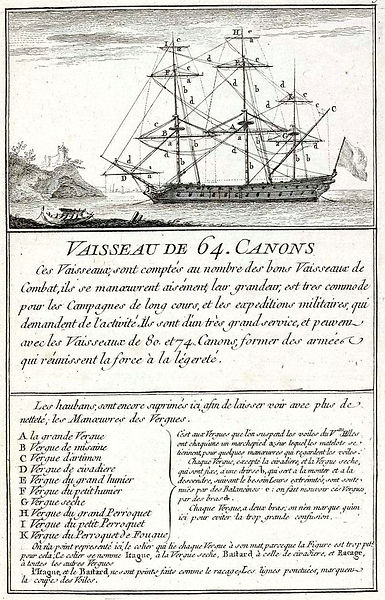 VAISSEAU DE 64. CANONS
Ces Vaisseaux, sont comptés au nombre des bons Vaisseaux de
Combat, ils se manœuvrent aisément, leur grandeur, est tres commode
pour les Campagnes de long cours, et les expeditions militaires, qui
demandent de l'activité. Ils sont d'un très grand service, et peuvent
avec les Vaisseaux de 80. et 74. Canons, former des armées
qui réunissent la force à la légereté.
Les haubans, sont encore suprimés ici, afin de laisser voir avec plus de
netteté, les Manœuvres des Vergues.
A la grande Vergue
B Vergue de misaine
C Vergue d'artimon
D Vergue de civadiere
E Vergue du grand hunier
F Vergue du petit hunier
G Vergue seche
H Vergue du grand Perroquet
I Vergue du petit Perroquet
K Vergue du Perroquet de Fougue
C'est aux Vergues que l'on suspend les voiles du Elles
ont chacune un marchepied sur lequel les matelots se
tiennent, pour quelques manœuvres qui regardent les voiles.
Chaque Vergue, excepté la civadiere, et la Vergue seche,
qui sont fixe, a une drisse b, qui sert a la monter et a la
descendre, suivant le besoin. Leurs extremités, sont soute-
nües par des Balancines c: on fait mouvoir ces Vergues
par des bras d.
Chaque Vergue, a deux bras, on n'en marque qu'un
ici pour eviter la trop grande confusion.
On n'a point representé ici, le colier qui lie chaque Vergue à son mat, parceque la Figure est trop petite
pour cela. Ce colier se nomme Itague, à la Vergue seche, Bastard à celle de civadiere, et Racage,
à toutes les autres Vergues
l'Itague, et le Bastard, ne sont points faits comme le racage. Les lignes ponctuées, marquent
la coupe des Voiles.